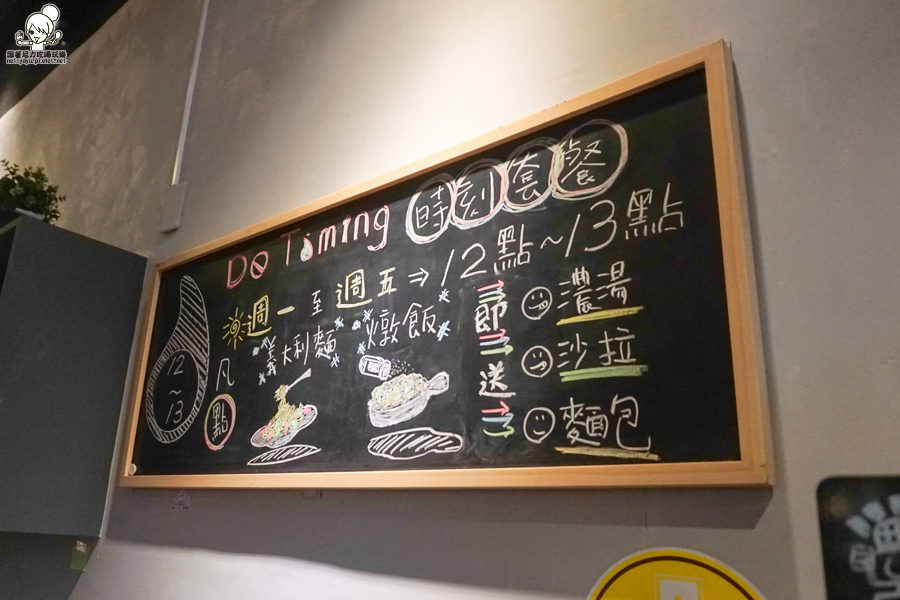 跟著尼力吃喝玩樂
nellydyu.pixnet.net
Do Timing 時刻套餐
週一至週五⇒12點~13點
12
~
13
凡點
義大利麵
燉飯
即送
濃湯
沙拉
麵包